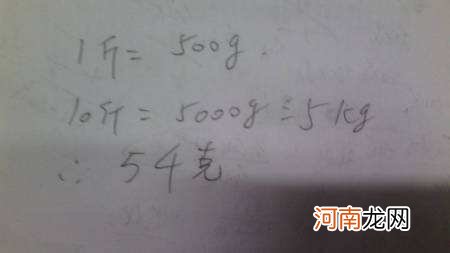 1斤= 500g.
10斤= 5000g=5kg
∴ 5千克
河南龙网